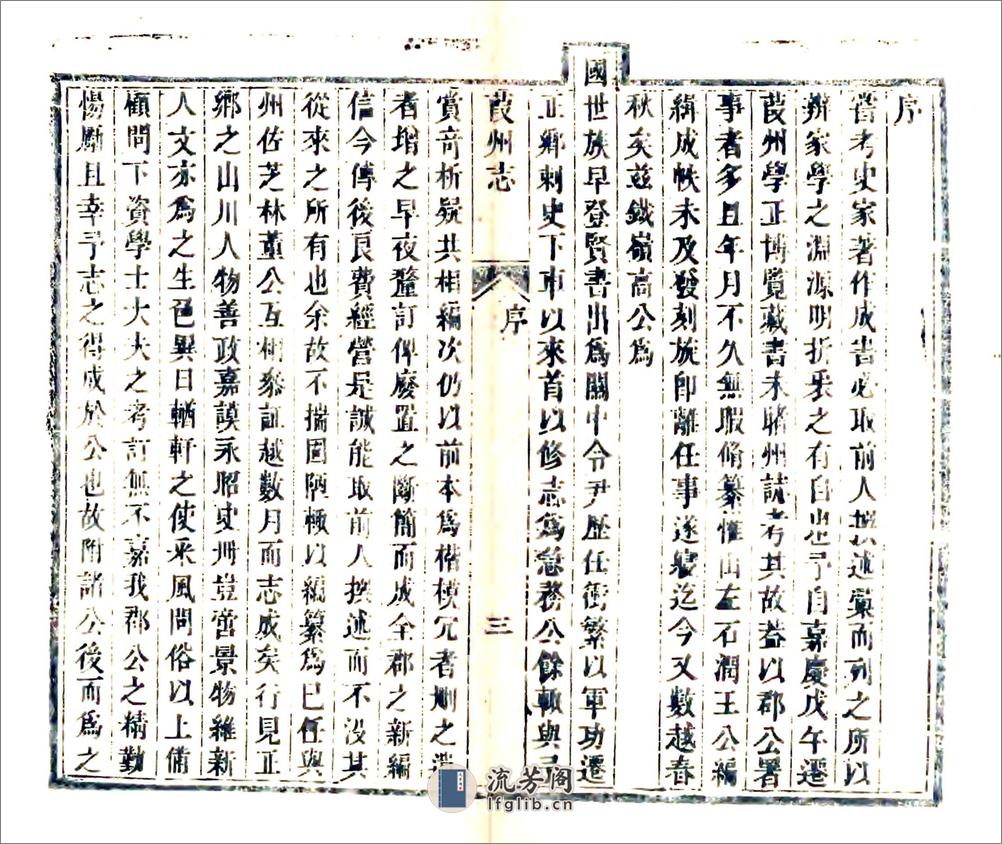 序
嘗考史家著作成書必取前人撰述彙而列之所以
辨家學之淵源明折衷之有自也予自嘉慶戊午遷
葭州學正博覽藏書未睹州誌考其故葢以郡公署
事者多且年月不久無暇脩纂惟山左石澗王公編
緝成帙未及發刻旋即離任事遂寢迄今又數越春
秋矣茲鐵嶺高公為
國世族早登賢書出為關中令尹歷任衝繁以軍功遷
正鄉刺史下車以來首以修志為急務公餘輙與
葭州志
序
三
賞奇析疑共相編次仍以前本為楷模冗者刪之
者增之早夜釐訂俾廢置之斷簡而成全郡之新編
信今傳後良費經營是誠能取前人撰述而不沒其
從來之所有也余故不揣固陋輙以編纂為已任與
州佐芝林董公互相叅証越數月而志成矣行見正
鄉之山川人物善政嘉謨永昭史冊豈啻景物維新
人文亦為之生色異日輶軒之使采風問俗以上備
顧問下資學士大夫之考訂無不嘉我郡公之精勤
惕勵且幸予志之得成於公也故附諸公後而為之
流芳阁
lfglib.cn